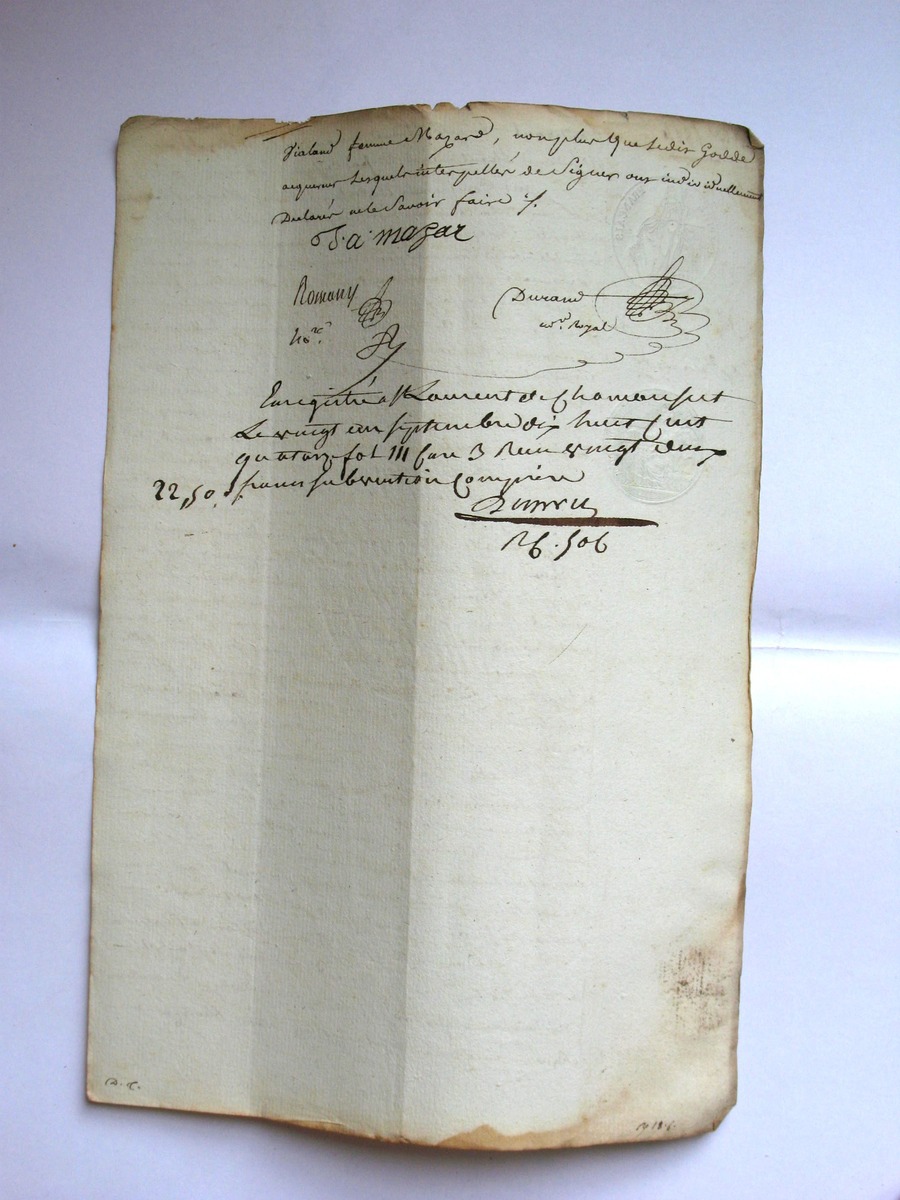 Vialand femme Mazard, non plus que ledit Godde
acquereur lesquels interpellés de Signer ont individuellement
Declarés ne le Savoir faire ./.
J. a. mazar
Romany
Durand
no.re
no.re Royal
Enregistré a St Laurent de Chamousset
Le vingt un septembre dix huit Cent
quatorze fol 111 Case 3 Reçu vingt deux
22,50. francs subvention Comprise